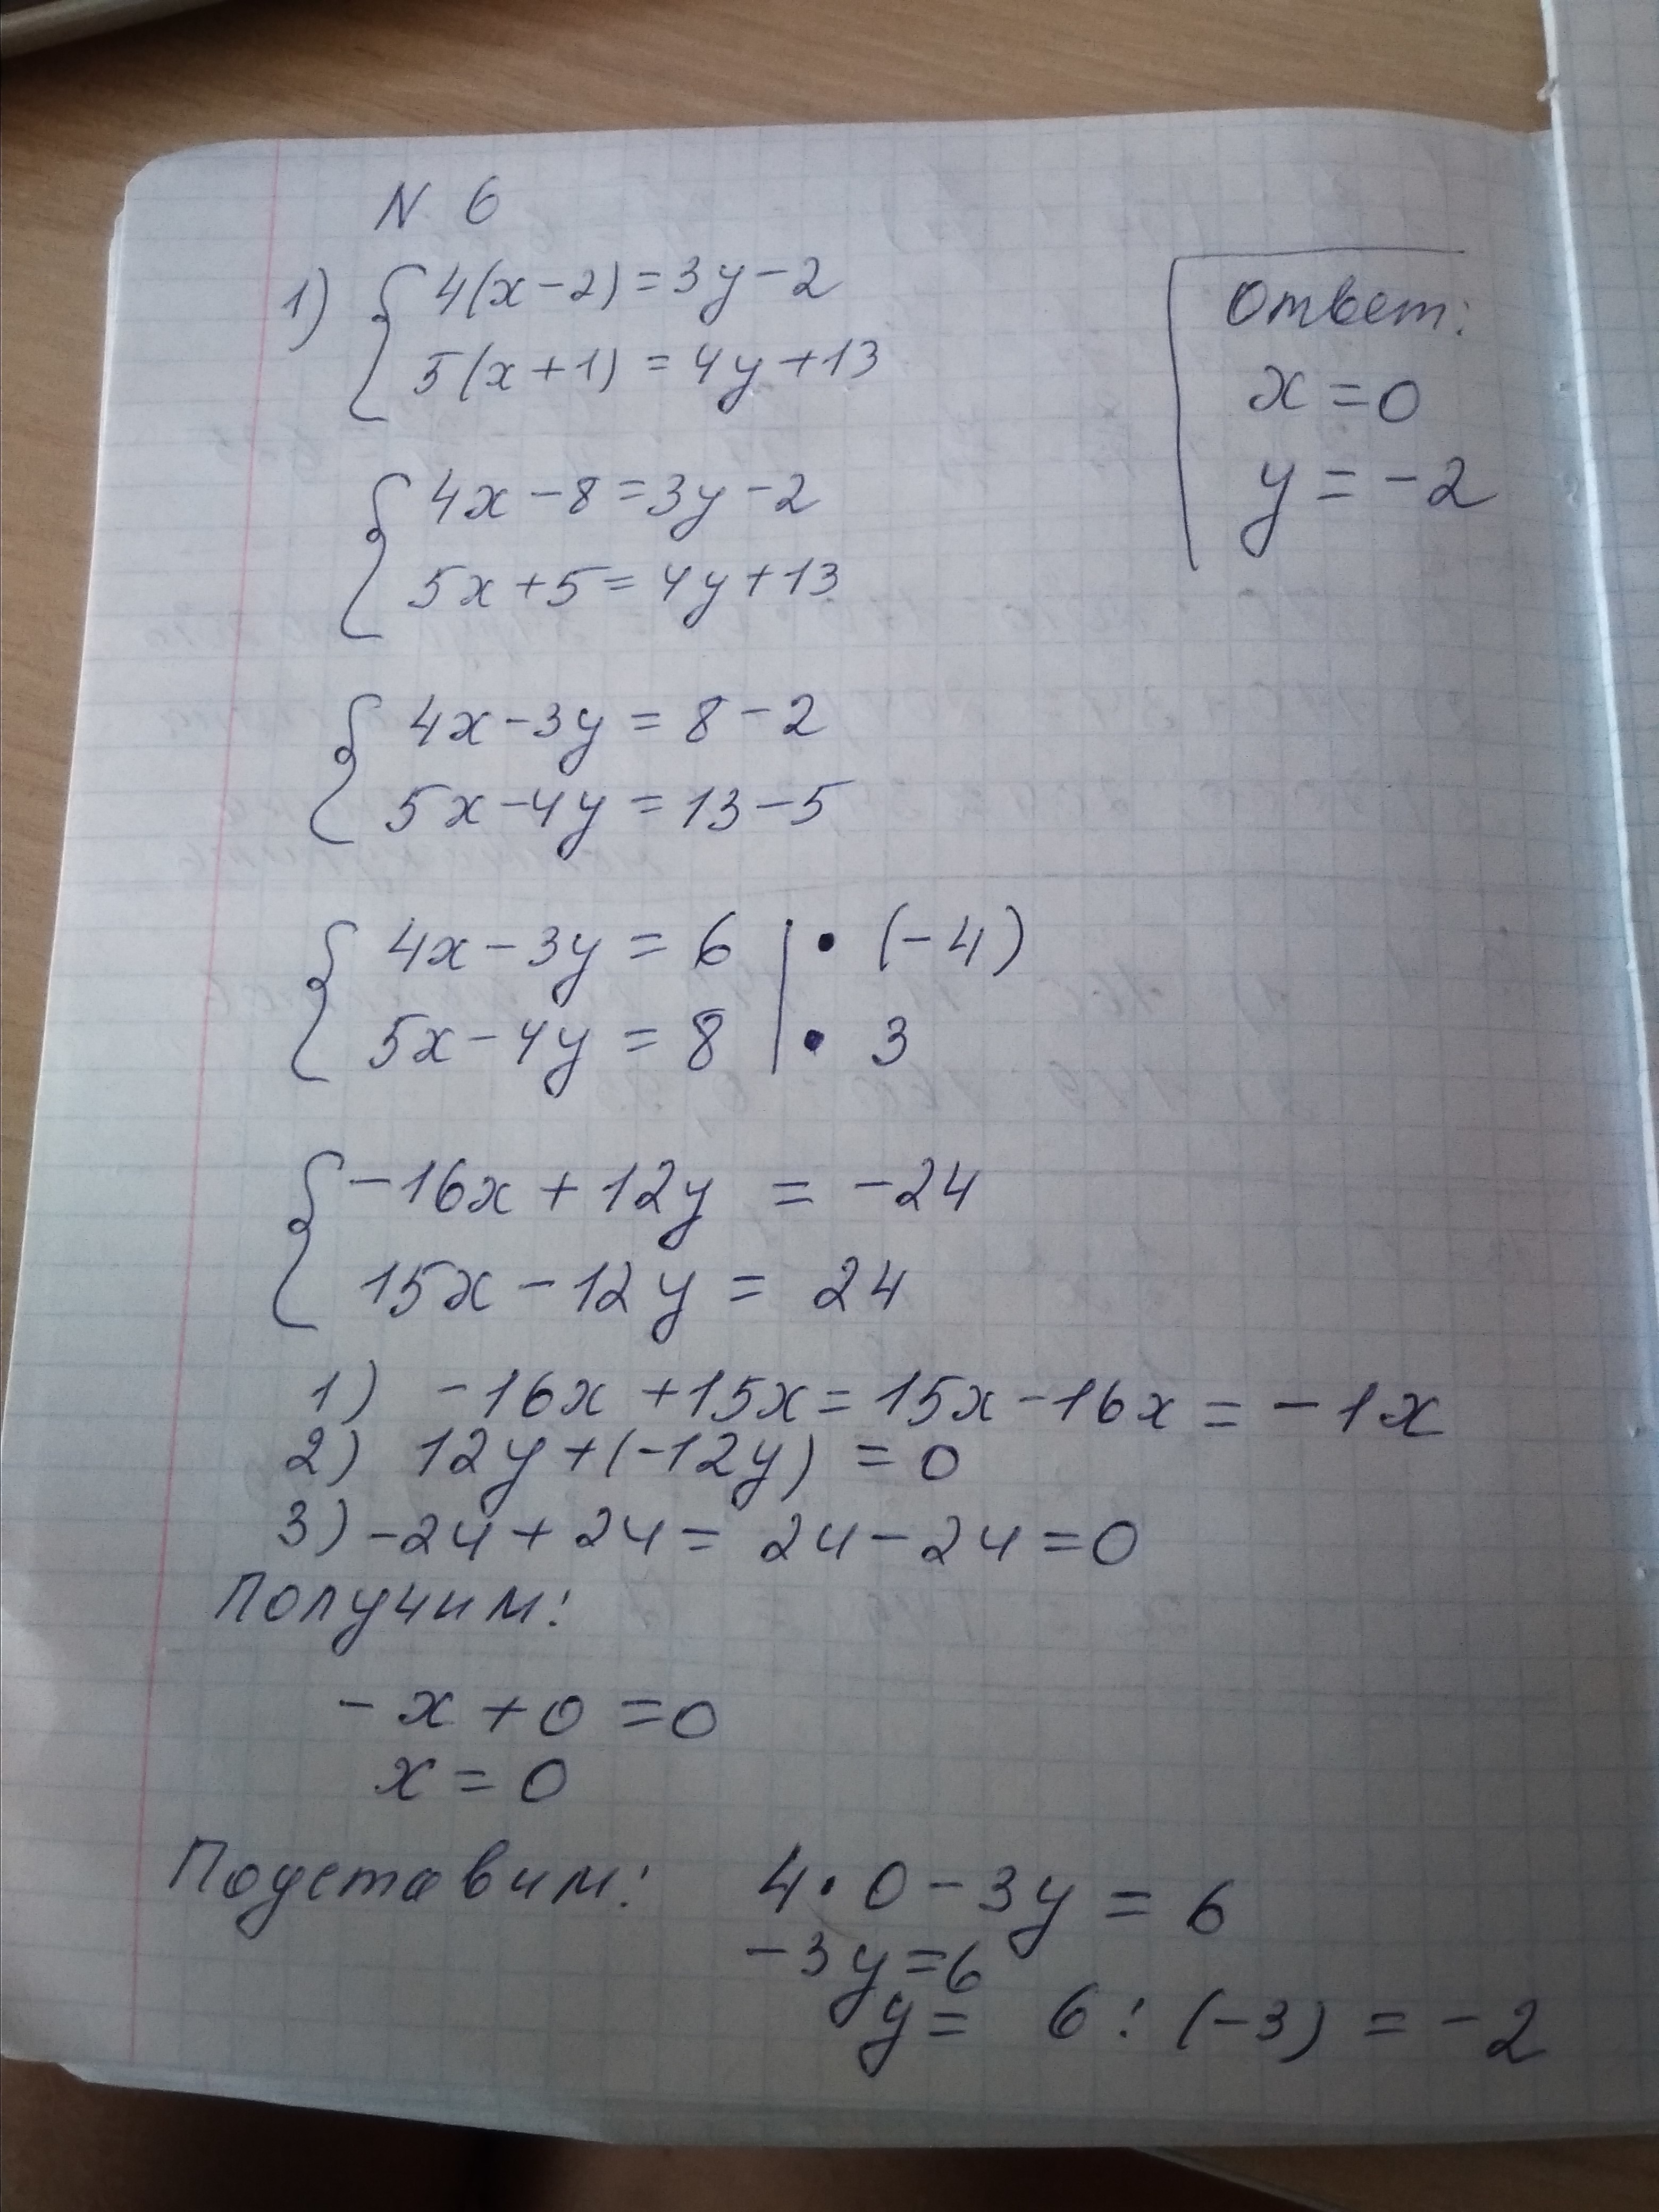 N 6
1) { 4(x-2)=3y-2
5(x+1)=4y+13
{ 4x-8=3y-2
5x+5=4y+13
{ 4x-3y=8-2
5x-4y=13-5
{ 4x-3y=6 | • (-4)
5x-4y=8 | • 3
{ -16x+12y = -24
15x-12y = 24
1) -16x+15x=15x-16x=-1x
2) 12y+(-12y)=0
3) -24+24= 24-24=0
Получим:
-x+0=0
x=0
Подставим: 4•0-3y=6
-3y=6
y= 6:(-3)=-2
Ответ:
x=0
y=-2